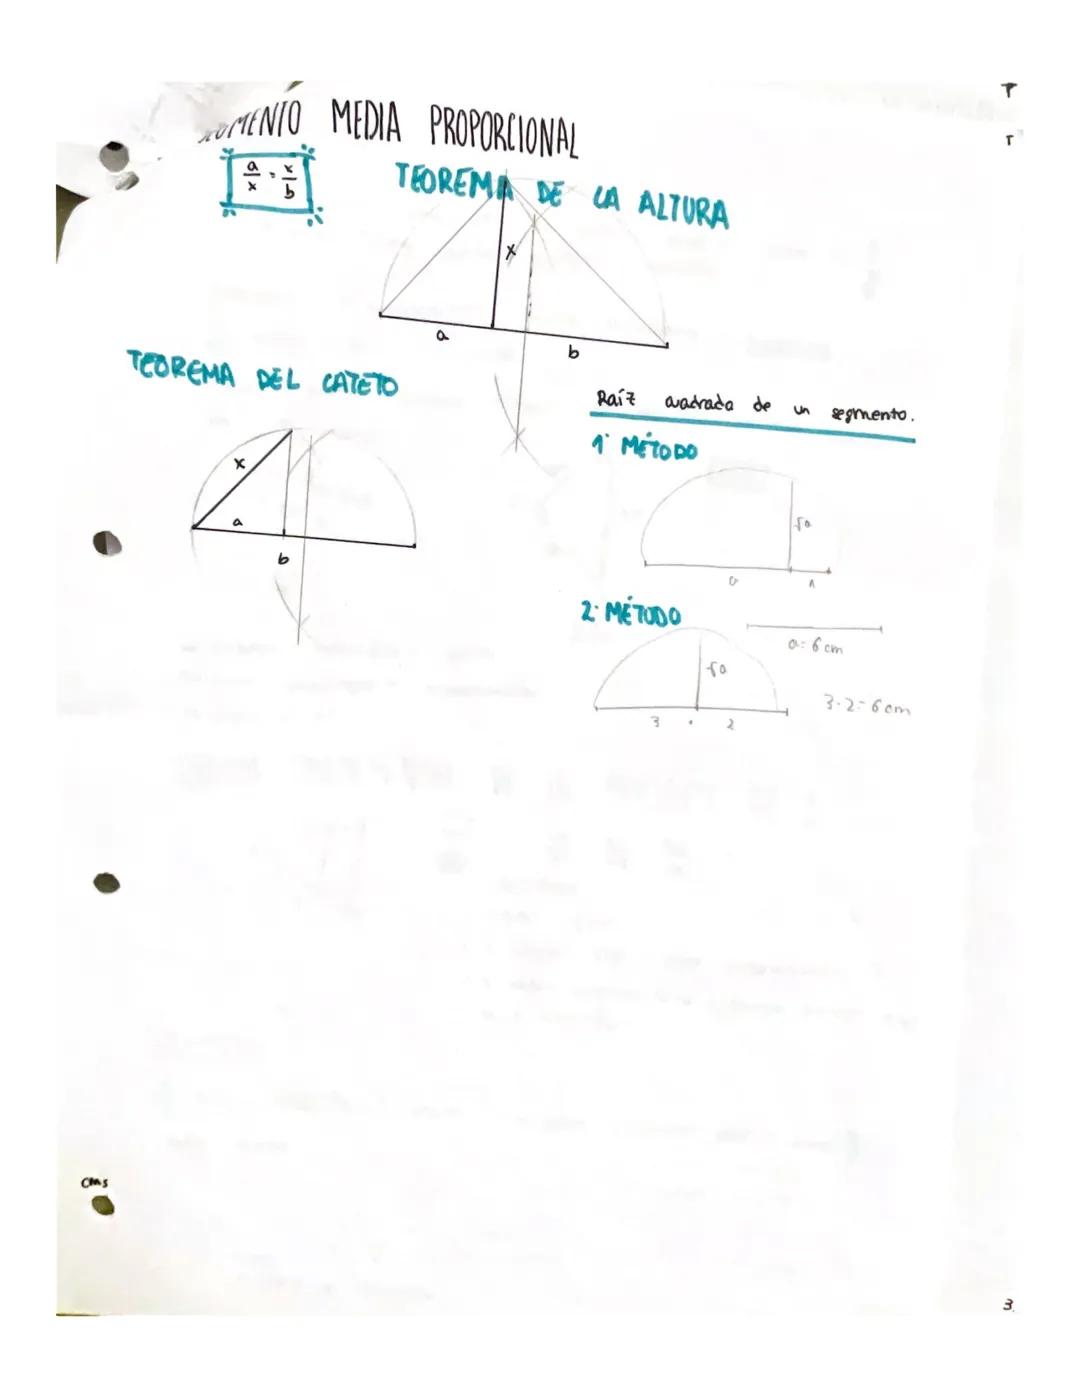 MEDIA PROPORCIONAL
a/x = x/b
TEOREMA DE LA ALTURA
x
a
b
TEOREMA DEL CATETO
x
a
b
Raíz cuadrada de un segmento.
1· MÉTODO
√a
a
1
2· MÉTODO
a = 6 cm
√a
3·2=6cm
3 · 2
cms
T
3.